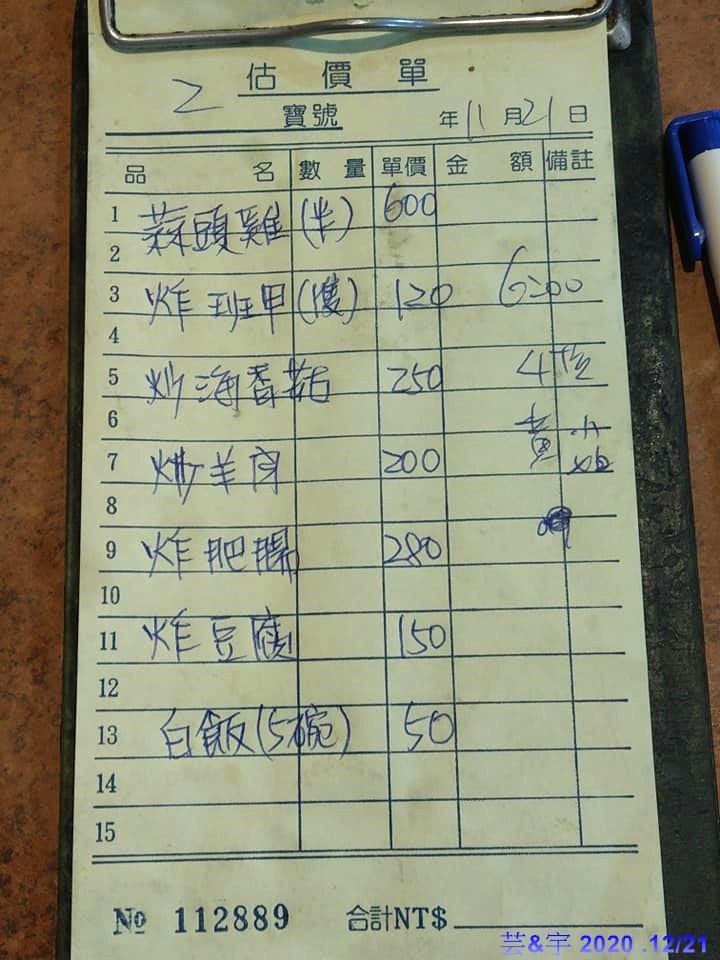 2
估價單
寶號 年11月21日
品名 數量 單價 金額 備註
1 蒜頭雞(半) 600
2
3 炸班甲(隻) 120 6:00
4
5 炒海香菇 250 4位
6 黃小姐
7 炒羊肉 200
8
9 炸肥腸 280
10
11 炸豆腐 150
12
13 白飯(5碗) 50
14
15
№ 112889 合計NT$
芸&宇 2020 .12/21